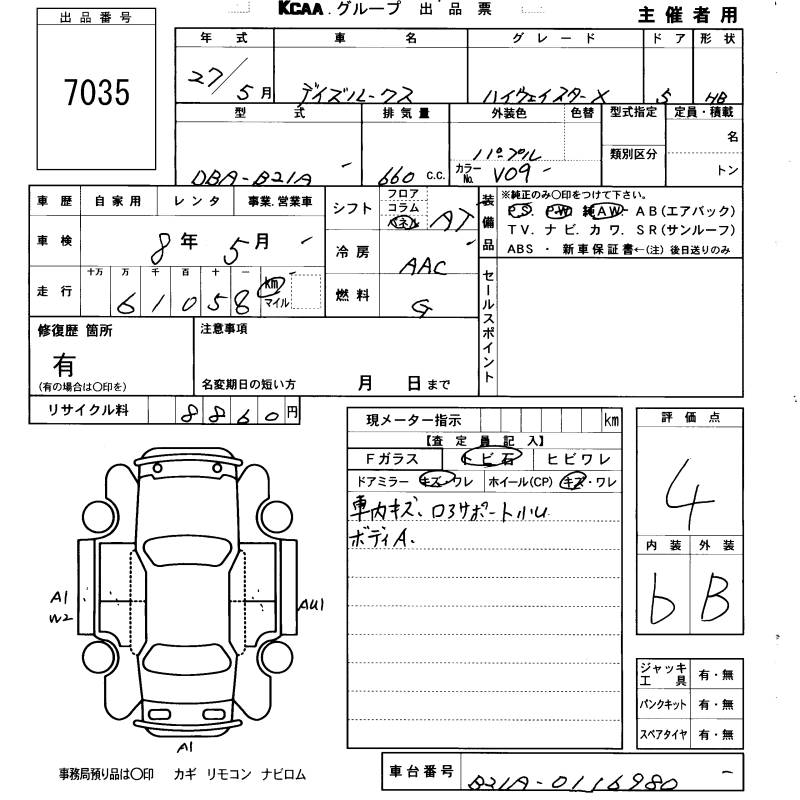 KCAA.グループ 出品票
主催者用
出品番号
7035
年式 車名 グレード ドア 形状
27/5月 デイズルークス ハイウェイスターX 5 HB
型式 排気量 外装色 色替 型式指定 定員・積載
類別区分 名
DBA-B21A 660 C.C. パープル カラーNo. V09 トン
車歴 自家用 レンタ 事業.営業車
シフト フロア コラム パネル AT
装備品 ※純正のみ〇印をつけて下さい。
PS. PW 純AW・AB(エアバック)
TV. ナビ. カワ. SR(サンルーフ)
ABS・新車保証書←(注)後日送りのみ
車検 8年5月
冷房 AAC
走行 十万 万 千 百 十 一
61058 km マイル
燃料 G
セールスポイント
修復歴 箇所 注意事項
有
(有の場合は〇印を) 名変期日の短い方 月 日まで
リサイクル料 8860円
現メーター指示 km
【査定員記入】
Fガラス トビ石 ヒビワレ
ドアミラー キズ・ワレ ホイール(CP) キズ・ワレ
車内キズ、ロアサポート小U
ボディA.
評価点
4
内装 外装
b B
A1
W2
AU1
A1
ジャッキ工具 有・無
パンクキット 有・無
スペアタイヤ 有・無
事務局預り品は〇印 カギ リモコン ナビロム
車台番号 B21A-0116980